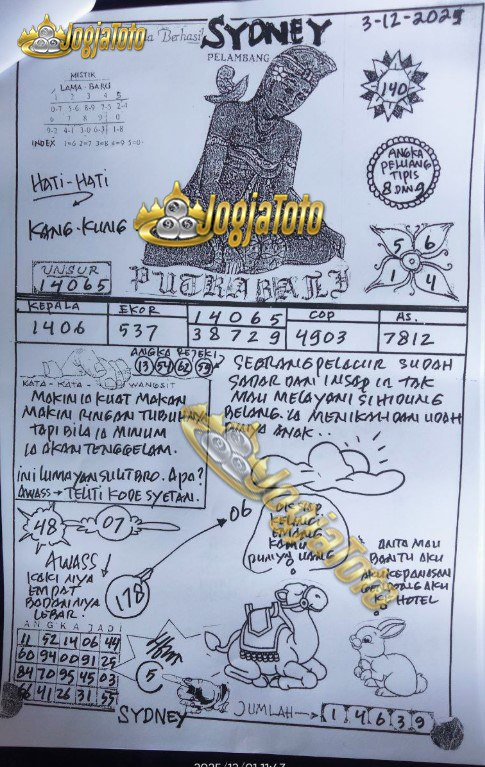 JogjaToto
Berhasil SYDNEY
3-12-2025
PELAMBANG
MISTIK
LAMA - BARU
1 2 3 4 5
0-7 5-6 8-9 7-5 2-4
6 7 8 9 0
9-2 4-1 3-0 6-3 1-8
INDEX 1=6 2=7 3=8 4=9 5=0
140
ANGKA
PELUANG
TIPIS
8 DAN 9
HATI-HATI
KANG-KUNG
JogjaToto
5 6
1 4
UNSUR
14065
PUTRA BALI
KEPALA EKOR 14065 COP AS.
1406 537 38729 4903 7812
ANGKA REJEKI
13 54 62 59
KATA - KATA WANGSIT
MAKIN IA KUAT MAKAN
MAKIN RINGAN TUBUHNYA
TAPI BILA IA MINUM
IA AKAN TENGGELAM.
INI LUMAYAN SULIT BRO. APA?
AWASS → TELITI KODE SYETAN.
SEORANG PELACUR SUDAH
SADAR DAN INSAP IA TAK
MAU MELAYANI SI HIDUNG
BELANG. IA MENIKAH DAN UDAH
PUNYA ANAK...
JogjaToto
48
07
06
AWASS
KAKI NYA
EMPAT
BADANNYA
LEBAR.
178
EMANG
KAMU
PUNYA UANG
ANITA MAU
BANTU AKU
AKU KEPANASAN
KE HOTEL
ANGKA JADI
11 52 14 06 44
60 94 00 91 25
84 70 95 45 03
68 41 26 31 57
5
SYDNEY
JUMLAH → 1 4 6 3 9
2025/12/01 11:43